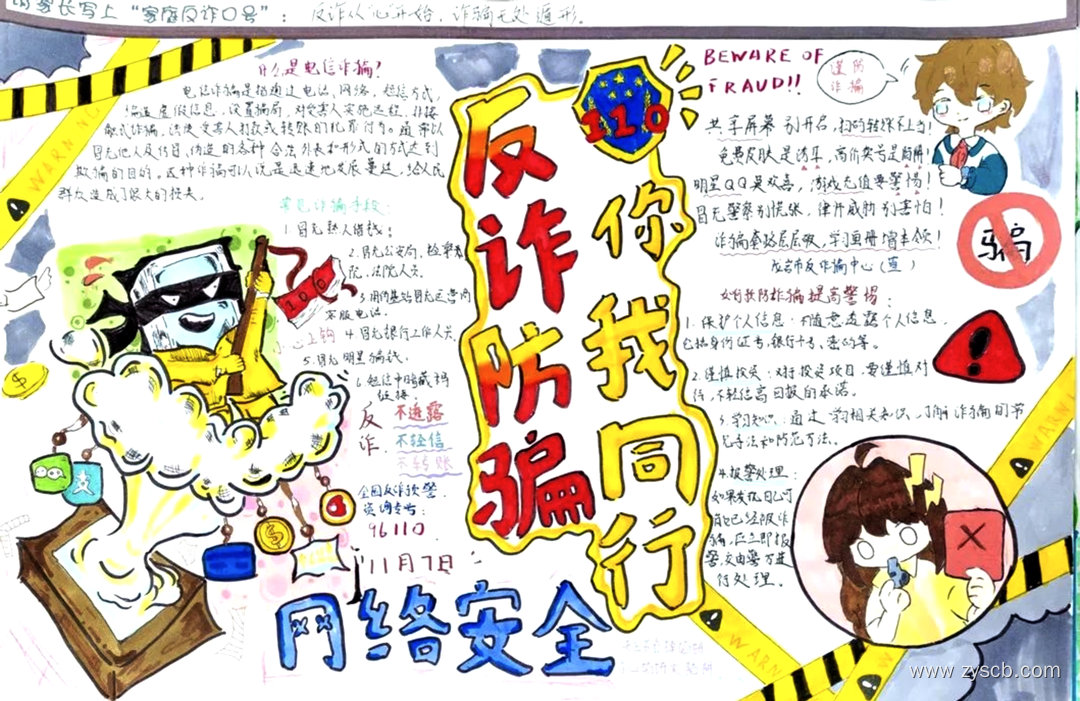 家长写上“家庭反诈口号”：反诈从“心”开始，诈骗无处遁形。
什么是电信诈骗？
电信诈骗是指通过电话、网络、短信方式，
编造虚假信息，设置骗局，对受害人实施远程、非接
触式诈骗，诱使受害人打款或转账的犯罪行为。通常以
冒充他人及仿冒、伪造的各种合法外衣和形式的方式达到
欺骗的目的。这种诈骗可以说是迅速地发展蔓延，给人民
群众造成了很大的损失。
常见诈骗手段：
1.冒充熟人借钱；
2.冒充公安局、检察
院、法院人员。
客服电话。
4.冒充银行工作人员
5.冒充明星骗钱
6.短信中暗藏
链接。
上钩
100
反诈
不透露
不轻信
不转账
全国反诈预警
专号：
96110
11月7日
网络安全
反诈防骗
你我同行
110
BEWARE OF
FRAUD!!
谨防
诈骗
共享屏幕别开启，扫码转账不上当！
免费皮肤是诱耳，高价卖号是陷阱！
明星QQ莫欢喜，游戏充值要警惕！
冒充警察别慌张，律师威胁别害怕！
诈骗套路层层吸，学习画册增本领！
反诈骗中心（宣）
骗
如何预防诈骗提高警惕：
1.保护个人信息：不随意透露个人信息，
包括身份证号、银行卡号、密码等。
2.谨慎投资：对于投资项目，要谨慎对
待，不轻信高回报的承诺。
3.学习知识：通过学习相关知识，了解诈骗的常
见手法和防范方法。
4.报警处理：
如果发现自己可
能已经被诈
骗，应立即报
警，交由警方进
行处理。
WARNING
WARN
WARNI
www.zyscb.com